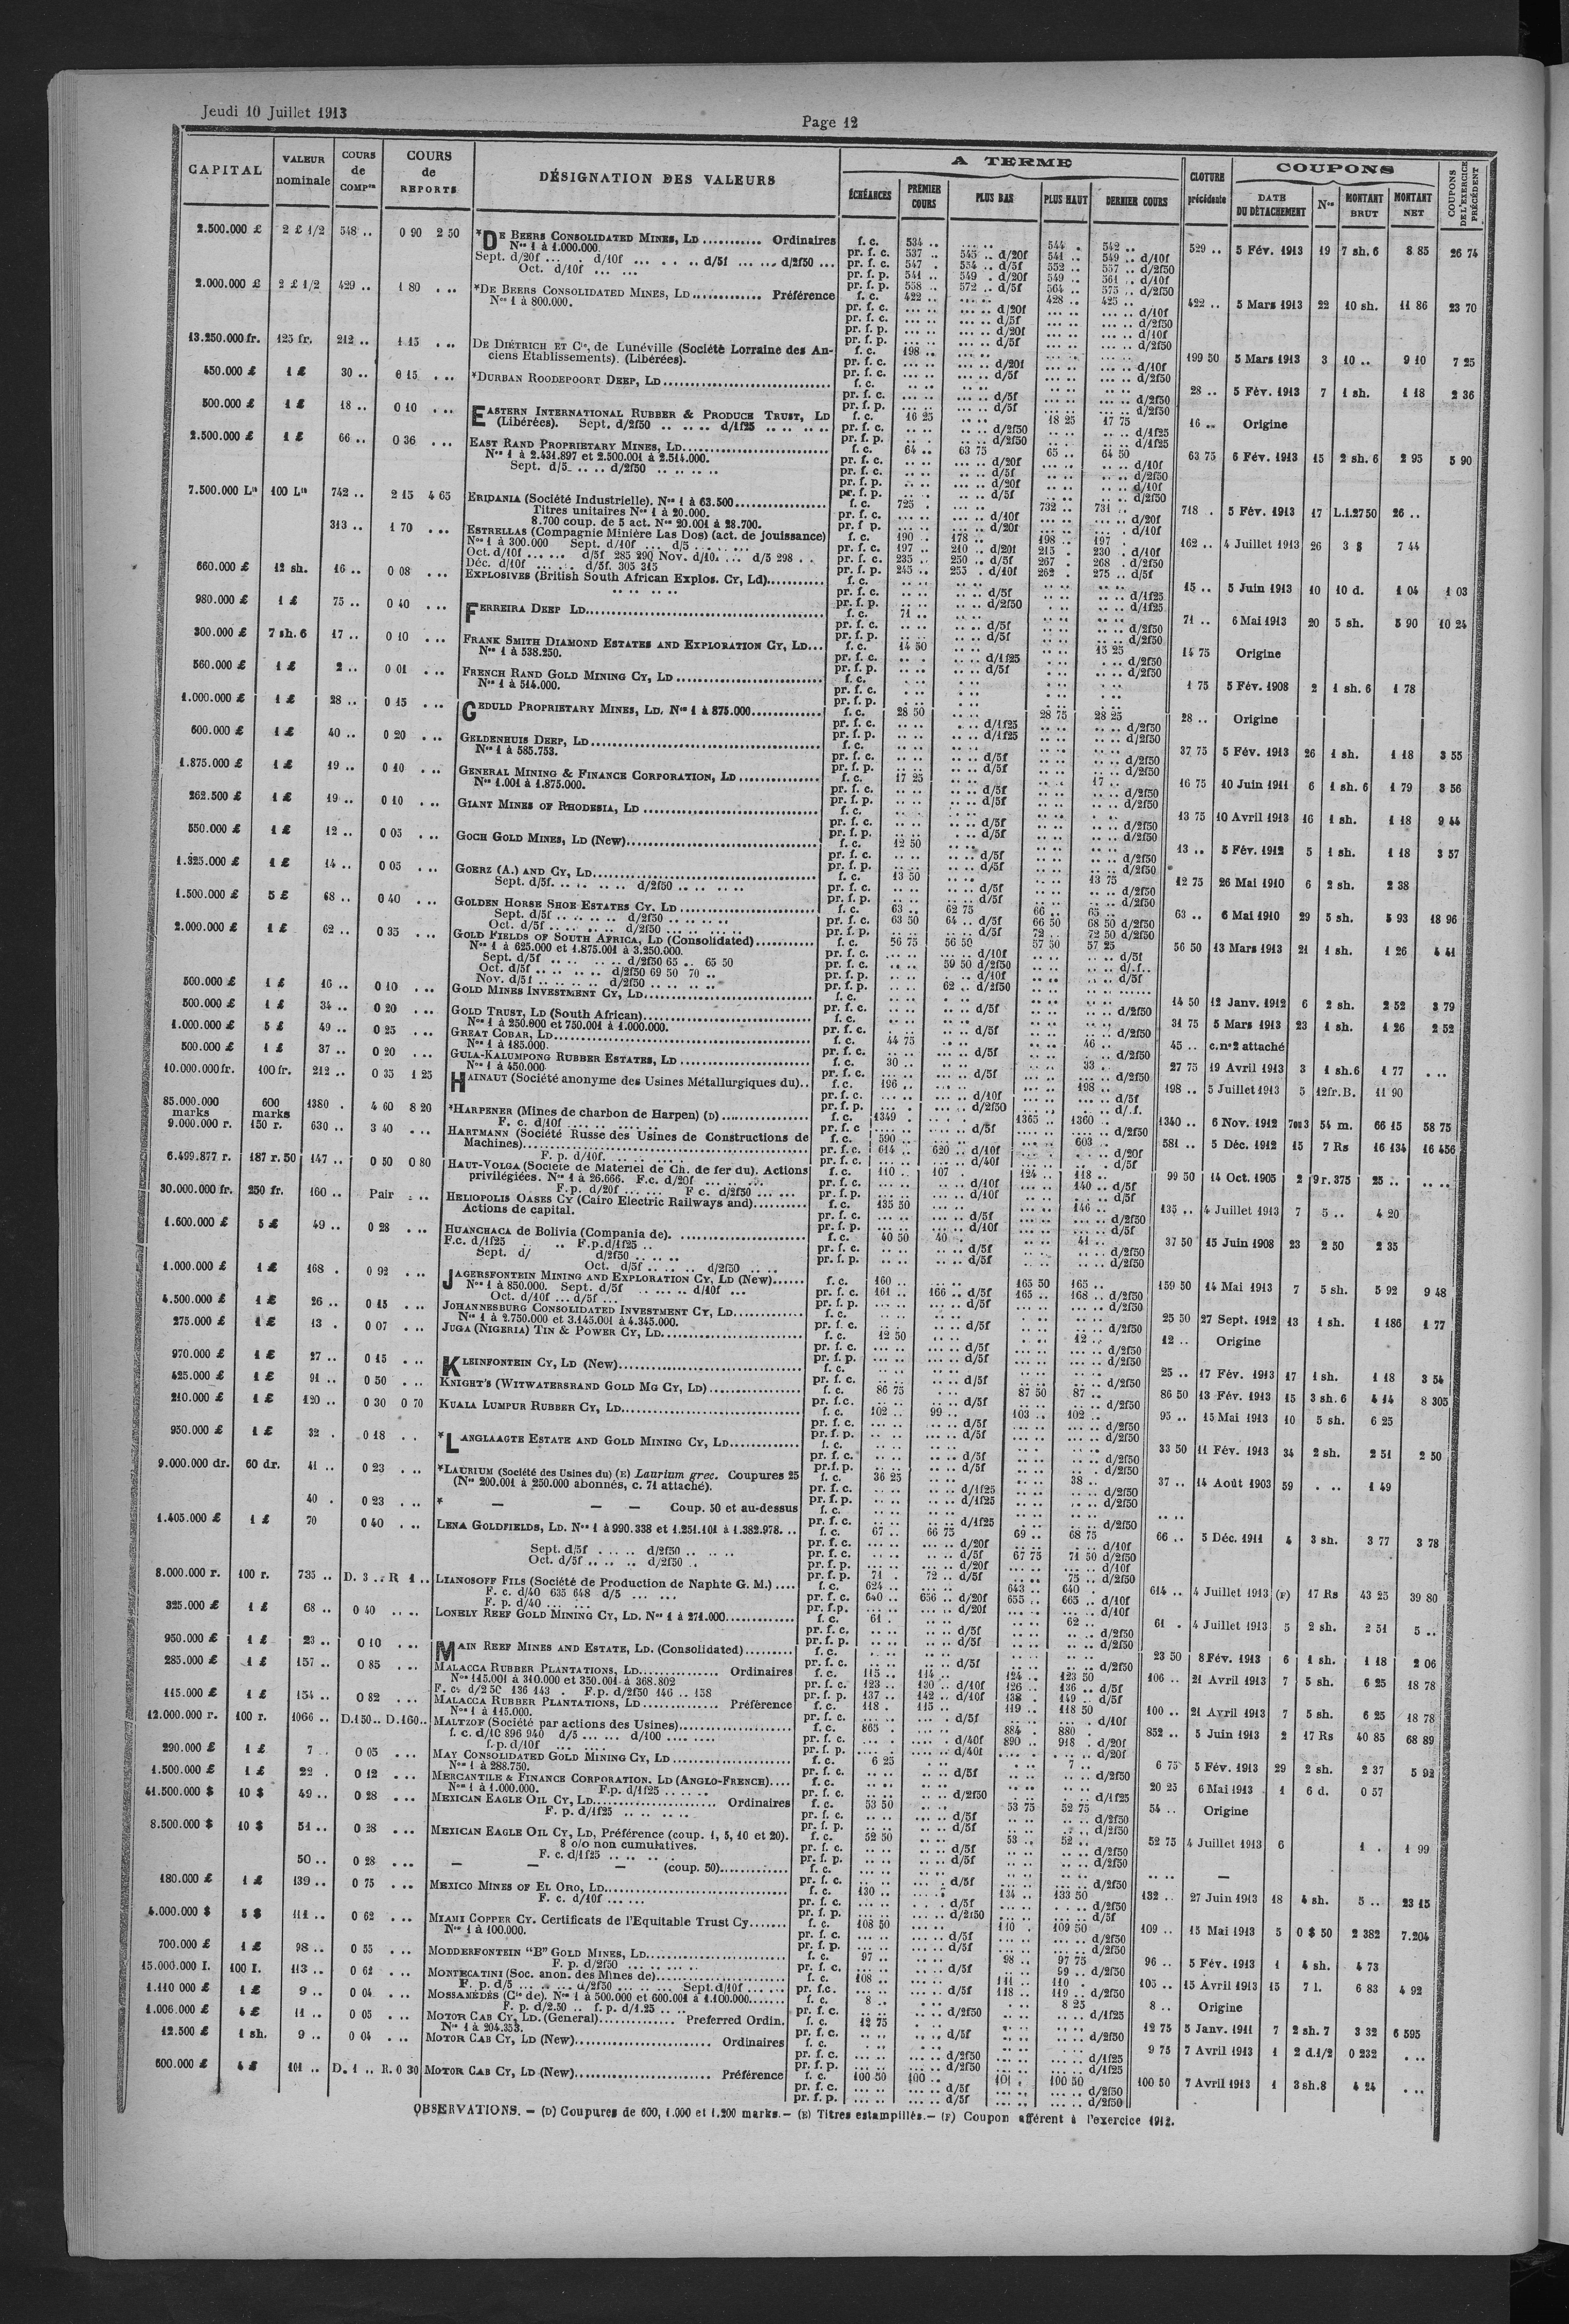 Jeudi 10 Juillet 1913
Page 12
CAPITAL | VALEUR nominale | COURS de COMPon | COURS de REPORTS | DÉSIGNATION DES VALEURS | A TERME | CLOTURE précédente | COUPONS | COUPONS DE L'EXERCICE PRÉCÉDENT
ÉCHÉANCES | PREMIER COURS | PLUS BAS | PLUS HAUT | DERNIER COURS | DATE DU DÉTACHEMENT | Nos | MONTANT BRUT | MONTANT NET
2.500.000 £ 2 £ 1/2 548 .. 0 90 2 50 *DE BEERS CONSOLIDATED MINES, LD ............ Ordinaires f. c. 534 .. 544 . 542 .. 529 .. 5 Fév. 1913 19 7 sh. 6 8 85 26 74
Nos 1 à 1.000.000. pr. f. c. 537 .. 545 .. d/20f 541 .. 549 .. d/10f
Sept. d/20f ... . d/10f ... . .. .. d/5f ... ... d/2f50 ... pr. f. c. 547 . 554 .. d/5f 552 .. 557 .. d/2f50
Oct. d/10f ... ... pr. f. p. 541 .. 549 . d/20f 549 .. 561 .. d/10f
pr. f. p. 558 .. 572 .. d/5f 564 .. 575 .. d/2f50
2.000.000 £ 2 £ 1/2 429 .. 1 80 . .. *DE BEERS CONSOLIDATED MINES, LD ............. Préférence f. c. 422 .. 428 .. 425 .. 422 .. 5 Mars 1913 22 10 sh. 11 86 23 70
Nos 1 à 800.000.
13.250.000 fr. 125 fr. 212 .. 1 15 . .. DE DIÉTRICH ET Cie, de Lunéville (Société Lorraine des An- f. c. 198 .. 199 50 5 Mars 1913 3 10 .. 9 10 7 25
ciens Etablissements). (Libérées).
450.000 £ 1 £ 30 .. 0 15 . .. *DURBAN ROODEPOORT DEEP, LD f. c. 28 .. 5 Fév. 1913 7 1 sh. 1 18 2 36
500.000 £ 1 £ 18 .. 0 10 . .. EASTERN INTERNATIONAL RUBBER & PRODUCE TRUST, LD f. c. 16 25 18 25 17 75 16 .. Origine
(Libérées). Sept. d/2f50 .. .. .. d/1f25 .. .. .. ..
2.500.000 £ 1 £ 66 .. 0 36 . .. EAST RAND PROPRIETARY MINES, LD f. c. 64 .. 63 75 65 .. 64 50 63 75 6 Fév. 1913 15 2 sh. 6 2 95 5 90
Nos 1 à 2.431.897 et 2.500.001 à 2.514.000.
Sept. d/5 .. .. .. d/2f50 .. .. .. ..
7.500.000 Les 100 Les 742 .. 2 15 4 65 ERIDANIA (Société Industrielle). Nos 1 à 63.500 f. c. 725 . 732 .. 731 .. 718 . 5 Fév. 1913 17 L.i.27 50 26 ..
Titres unitaires Nos 1 à 20.000.
8.700 coup. de 5 act. Nos 20.001 à 28.700.
313 .. 1 70 . .. ESTRELLAS (Compagnie Minière Las Dos) (act. de jouissance) f. c. 190 .. 178 .. 198 .. 197 . 162 .. 4 Juillet 1913 26 3 $ 7 44
Nos 1 à 300.000 Sept. d/10f ... ... d/5 ... .. ... pr. f. c. 197 .. 210 .. d/20f 215 . 230 . d/10f
Oct. d/10f ... ... d/5f 285 290 Nov. d/10f ... d/5 298 . . pr. f. c. 235 .. 250 .. d/5f 267 . 268 . d/2f50
Déc. d/10f ... ... d/5f. 305 315 pr. f. p. 245 .. 255 . d/10f 262 . 275 .. d/5f
660.000 £ 12 sh. 16 .. 0 08 . .. EXPLOSIVES (British South African Explos. Cy, Ld) f. c. 15 .. 5 Juin 1913 10 10 d. 1 04 1 03
980.000 £ 1 £ 75 .. 0 40 . .. FERREIRA DEEP LD f. c. 71 .. 71 .. 6 Mai 1913 20 5 sh. 5 90 10 24
300.000 £ 7 sh. 6 17 .. 0 10 . .. FRANK SMITH DIAMOND ESTATES AND EXPLORATION CY, LD f. c. 14 50 15 25 14 75 Origine
Nos 1 à 538.250.
560.000 £ 1 £ 2 .. 0 01 . .. FRENCH RAND GOLD MINING CY, LD f. c. 1 75 5 Fév. 1908 2 1 sh. 6 1 78
Nos 1 à 514.000.
1.000.000 £ 1 £ 28 .. 0 15 . .. GEDULD PROPRIETARY MINES, LD. Nos 1 à 875.000 f. c. 28 50 28 75 28 25 28 .. Origine
600.000 £ 1 £ 40 .. 0 20 . .. GELDENHUIS DEEP, LD f. c. 37 75 5 Fév. 1913 26 1 sh. 1 18 3 55
Nos 1 à 585.753.
1.875.000 £ 1 £ 19 .. 0 10 . .. GENERAL MINING & FINANCE CORPORATION, LD f. c. 17 25 17 .. 16 75 10 Juin 1911 6 1 sh. 6 1 79 3 56
Nos 1.001 à 1.875.000.
262.500 £ 1 £ 19 .. 0 10 . .. GIANT MINES OF RHODESIA, LD f. c. 13 75 10 Avril 1913 16 1 sh. 1 18 9 44
550.000 £ 1 £ 12 .. 0 05 . .. GOCH GOLD MINES, LD (New) f. c. 12 50 13 .. 5 Fév. 1912 5 1 sh. 1 18 3 57
1.325.000 £ 1 £ 14 .. 0 05 . .. GOERZ (A.) AND CY, LD f. c. 13 50 13 75 12 75 26 Mai 1910 6 2 sh. 2 38
Sept. d/5f. .. .. .. .. d/2f50 .. .. .. ..
1.500.000 £ 5 £ 68 .. 0 40 . .. GOLDEN HORSE SHOE ESTATES CY. LD f. c. 63 .. 62 75 66 .. 65 .. 63 .. 6 Mai 1910 29 5 sh. 5 93 18 96
Sept. d/5f .. .. .. .. d/2f50 .. .. .. .. pr. f. c. 63 50 64 .. d/5f 66 50 68 50 d/2f50
Oct. d/5f .. .. .. .. d/2f50 .. .. .. .. pr. f. p. .. .. d/5f 72 .. 72 50 d/2f50
2.000.000 £ 1 £ 62 .. 0 35 . .. GOLD FIELDS OF SOUTH AFRICA, LD (Consolidated) f. c. 56 75 56 50 57 50 57 25 56 50 13 Mars 1913 21 1 sh. 1 26 4 41
Nos 1 à 625.000 et 1.875.001 à 3.250.000.
Sept. d/5f .. .. .. .. d/2f50 65 .. 65 50 pr. f. c. 59 50 d/2f50
Oct. d/5f .. .. .. .. d/2f50 69 50 70 ..
Nov. d/5f .. .. .. .. d/2f50 .. .. .. .. pr. f. p. 62 .. d/2f50
500.000 £ 1 £ 16 .. 0 10 . .. GOLD MINES INVESTMENT CY, LD f. c. 14 50 12 Janv. 1912 6 2 sh. 2 52 3 79
500.000 £ 1 £ 34 .. 0 20 . .. GOLD TRUST, LD (South African) f. c. 31 75 5 Mars 1913 23 1 sh. 1 26 2 52
Nos 1 à 250.000 et 750.001 à 1.000.000.
1.000.000 £ 5 £ 49 .. 0 25 . .. GREAT COBAR, LD f. c. 44 75 46 .. 45 .. c.no2 attaché
Nos 1 à 185.000.
500.000 £ 1 £ 37 .. 0 20 . .. GULA-KALUMPONG RUBBER ESTATES, LD f. c. 30 .. 33 .. 27 75 19 Avril 1913 3 1 sh.6 1 77
Nos 1 à 450.000
10.000.000 fr. 100 fr. 212 .. 0 35 1 25 HAINAUT (Société anonyme des Usines Métallurgiques du) f. c. 196 .. 198 .. 198 .. 5 Juillet 1913 5 12fr.B. 11 90
85.000.000 marks 600 marks 1380 . 4 60 8 20 *HARPENER (Mines de charbon de Harpen) (D) f. c. 1349 . 1365 .. 1360 .. 1340 .. 6 Nov. 1912 7ou3 54 m. 66 15 58 75
F. c. d/10f
9.000.000 r. 150 r. 630 .. 3 40 . .. HARTMANN (Société Russe des Usines de Constructions de f. c. 590 .. 603 .. 581 .. 5 Déc. 1912 15 7 Rs 16 134 16 456
Machines) pr. f. c. 614 .. 620 .. d/10f
F. p. d/10f.
6.499.877 r. 187 r. 50 147 .. 0 50 0 80 HAUT-VOLGA (Société de Matériel de Ch. de fer du). Actions f. c. 110 .. 107 .. 124 .. 118 .. 99 50 14 Oct. 1905 2 9 r. 375 25 ..
privilégiées. Nos 1 à 26.666. F.c. d/20f 140 .. d/5f
F.p. d/20f ... ... F c. d/2f50 ... ...
30.000.000 fr. 250 fr. 160 .. Pair . .. HELIOPOLIS OASES CY (Cairo Electric Railways and) f. c. 135 50 146 .. 135 .. 4 Juillet 1913 7 5 .. 4 20
Actions de capital.
1.600.000 £ 5 £ 49 .. 0 28 . .. HUANCHACA de Bolivia (Compania de). f. c. 40 50 40 . 41 .. 37 50 15 Juin 1908 23 2 50 2 35
F.c. d/1f25 .. .. F.p.d/1f25 ..
Sept. d/ d/2f50 .. .. ..
Oct. d/5f .. .. .. d/2f50 .. ..
1.000.000 £ 1 £ 168 . 0 92 . .. JAGERSFONTEIN MINING AND EXPLORATION CY, LD (New) f. c. 160 .. 165 50 165 .. 159 50 14 Mai 1913 7 5 sh. 5 92 9 48
Nos 1 à 850.000. Sept. d/5f .. ... .. d/10f ... pr. f. c. 161 .. 166 .. d/5f 165 .. 168 .. d/2f50
Oct. d/10f ... d/5f ...
4.500.000 £ 1 £ 26 .. 0 15 . .. JOHANNESBURG CONSOLIDATED INVESTMENT CY, LD f. c. 25 50 27 Sept. 1912 13 1 sh. 1 186 1 77
Nos 1 à 2.750.000 et 3.145.001 à 4.345.000.
275.000 £ 1 £ 13 . 0 07 . .. JUGA (NIGERIA) TIN & POWER CY, LD f. c. 12 50 12 .. 12 .. Origine
970.000 £ 1 £ 27 .. 0 15 . .. KLEINFONTEIN CY, LD (New) f. c. 25 .. 17 Fév. 1913 17 1 sh. 1 18 3 54
425.000 £ 1 £ 91 .. 0 50 . .. KNIGHT'S (WITWATERSRAND GOLD MG CY, LD) f. c. 86 75 87 50 87 .. 86 50 13 Fév. 1913 15 3 sh. 6 4 14 8 305
210.000 £ 1 £ 120 .. 0 30 0 70 KUALA LUMPUR RUBBER CY, LD f. c. 102 .. 99 .. 103 .. 102 .. 95 .. 15 Mai 1913 10 5 sh. 6 25
950.000 £ 1 £ 32 . 0 18 . . *LANGLAAGTE ESTATE AND GOLD MINING CY, LD f. c. 33 50 11 Fév. 1913 34 2 sh. 2 51 2 50
9.000.000 dr. 60 dr. 41 .. 0 23 . .. *LAURIUM (Société des Usines du) (E) Laurium grec. Coupures 25 f. c. 36 25 38 .. 37 .. 14 Août 1903 59 1 49
(Nos 200.001 à 250.000 abonnés, c. 71 attaché).
40 . 0 23 . .. * — — — Coup. 50 et au-dessus f. c.
1.405.000 £ 1 £ 70 0 40 . .. LENA GOLDFIELDS, LD. Nos 1 à 990.338 et 1.251.101 à 1.382.978. f. c. 67 .. 66 75 69 .. 68 75 66 .. 5 Déc. 1911 4 3 sh. 3 77 3 78
Sept. d/5f . .. .. d/2f50 .. .. .. pr. f. c. d/5f 67 75 71 50 d/2f50
Oct. d/5f .. .. .. d/2f50 . pr. f. p. 71 . 72 .. d/5f 75 .. d/2f50
8.000.000 r. 100 r. 735 .. D. 3 .. R 1 .. LIANOSOFF FILS (Société de Production de Naphte G. M.) f. c. 624 .. 643 .. 640 . 614 .. 4 Juillet 1913 (F) 17 Rs 43 25 39 80
F. c. d/40 635 648 d/5 ... ... pr. f. c. 640 .. 656 .. d/20f 655 .. 665 .. d/10f
F. p. d/40 ... ...
325.000 £ 1 £ 68 .. 0 40 .. .. LONELY REEF GOLD MINING CY, LD. Nos 1 à 271.000 f. c. 61 . 62 .. 61 . 4 Juillet 1913 5 2 sh. 2 51 5 ..
950.000 £ 1 £ 23 .. 0 10 . .. MAIN REEF MINES AND ESTATE, LD. (Consolidated) f. c. 23 50 8 Fév. 1913 6 1 sh. 1 18 2 06
285.000 £ 1 £ 157 .. 0 85 . .. MALACCA RUBBER PLANTATIONS, LD ............... Ordinaires f. c. 115 .. 114 .. 124 .. 123 50 106 .. 21 Avril 1913 7 5 sh. 6 25 18 78
Nos 115.001 à 340.000 et 350.001 à 368.802 pr. f. c. 123 .. 130 .. d/10f 126 .. 136 .. d/5f
F. c. d/2 50 136 143 . F.p. d/2f50 146 .. 158 pr. f. p. 137 .. 142 .. d/10f 138 . 149 .. d/5f
115.000 £ 1 £ 154 .. 0 82 . .. MALACCA RUBBER PLANTATIONS, LD ............... Préférence f. c. 118 . 115 .. 119 .. 118 50 100 .. 21 Avril 1913 7 5 sh. 6 25 18 78
Nos 1 à 115.000.
12.000.000 r. 100 r. 1066 .. D.150.. D.160.. MALTZOF (Société par actions des Usines) f. c. 865 . 884 . 880 . 852 .. 5 Juin 1913 2 17 Rs 40 85 68 89
f. c. d/10 896 940 d/5 ... ... d/100 .... .... pr. f. c. d/40f 890 .. 918 . d/20f
f.p. d/10f ... ...
290.000 £ 1 £ 7 . 0 05 . .. MAY CONSOLIDATED GOLD MINING CY, LD f. c. 6 25 7 .. 6 75 5 Fév. 1913 29 2 sh. 2 37 5 92
Nos 1 à 288.750.
1.500.000 £ 1 £ 22 . 0 12 . .. MERCANTILE & FINANCE CORPORATION. LD (ANGLO-FRENCH) f. c. 20 25 6 Mai 1913 1 6 d. 0 57
Nos 1 à 1.000.000. F.p. d/1f25 .. .. .. ..
41.500.000 $ 10 $ 49 .. 0 28 . .. MEXICAN EAGLE OIL CY, LD .......... Ordinaires f. c. 53 50 53 75 52 75 54 .. Origine
F. p. d/1f25 .. .. .. ..
8.500.000 $ 10 $ 51 .. 0 28 . .. MEXICAN EAGLE OIL CY, LD, Préférence (coup. 1, 5, 10 et 20). f. c. 52 50 53 .. 52 .. 52 75 4 Juillet 1913 6 1 . 1 99
8 o/o non cumulatives.
F. c. d/1f25 .. .. ..
50 .. 0 28 . .. — — — (coup. 50) f. c. —
180.000 £ 1 £ 139 .. 0 75 . .. MEXICO MINES OF EL ORO, LD f. c. 130 .. 134 .. 133 50 132 .. 27 Juin 1913 18 4 sh. 5 .. 23 15
F. c. d/10f ... ...
4.000.000 $ 5 $ 111 .. 0 62 . .. MIAMI COPPER CY. Certificats de l'Equitable Trust Cy f. c. 108 50 110 . 109 50 109 .. 15 Mai 1913 5 0 $ 50 2 382 7.204
Nos 1 à 100.000.
700.000 £ 1 £ 98 .. 0 55 . .. MODDERFONTEIN "B" GOLD MINES, LD f. c. 97 .. 98 .. 97 75 96 .. 5 Fév. 1913 1 4 sh. 4 73
F. p. d/2f50 ... .. ... .. pr. f. c. d/5f 99 .. d/2f50
15.000.000 l. 100 l. 113 .. 0 61 . .. MONTECATINI (Soc. anon. des Mines de) f. c. 108 .. 111 .. 110 . 105 .. 15 Avril 1913 15 7 l. 6 83 4 92
F. p. d/5 ... ... .. d/2f50 ... .. ... Sept. d/10f ... ... pr. f.c. d/5f 118 .. 119 .. d/2f50
1.110 000 £ 1 £ 9 .. 0 04 . .. MOSSAMÉDÈS (Cie de). Nos 1 à 500.000 et 600.001 à 1.100.000 f. c. 8 .. 8 25 8 .. Origine
F. p. d/2.50 .. f. p. d/1.25 .. ..
1.006.000 £ 4 £ 11 .. 0 05 . .. MOTOR CAB CY, LD. (General) .............. Preferred Ordin. f. c. 12 75 12 75 5 Janv. 1911 7 2 sh. 7 3 32 6 595
Nos 1 à 204.353.
12.500 £ 1 sh. 9 .. 0 04 . .. MOTOR CAB CY, LD (New) ......... Ordinaires f. c. 9 75 7 Avril 1913 1 2 d.1/2 0 232
600.000 £ 4 £ 101 .. D. 1 .. R. 0 30 MOTOR CAB CY, LD (New) ......... Préférence f. c. 100 50 100 .. 101 . 100 50 100 50 7 Avril 1913 1 3 sh.8 4 24
pr. f. c. d/5f d/2f50
pr. f. p. d/5f d/2f50
OBSERVATIONS. — (D) Coupures de 600, 1.000 et 1.200 marks. — (E) Titres estampillés. — (F) Coupon afférent à l'exercice 1912.